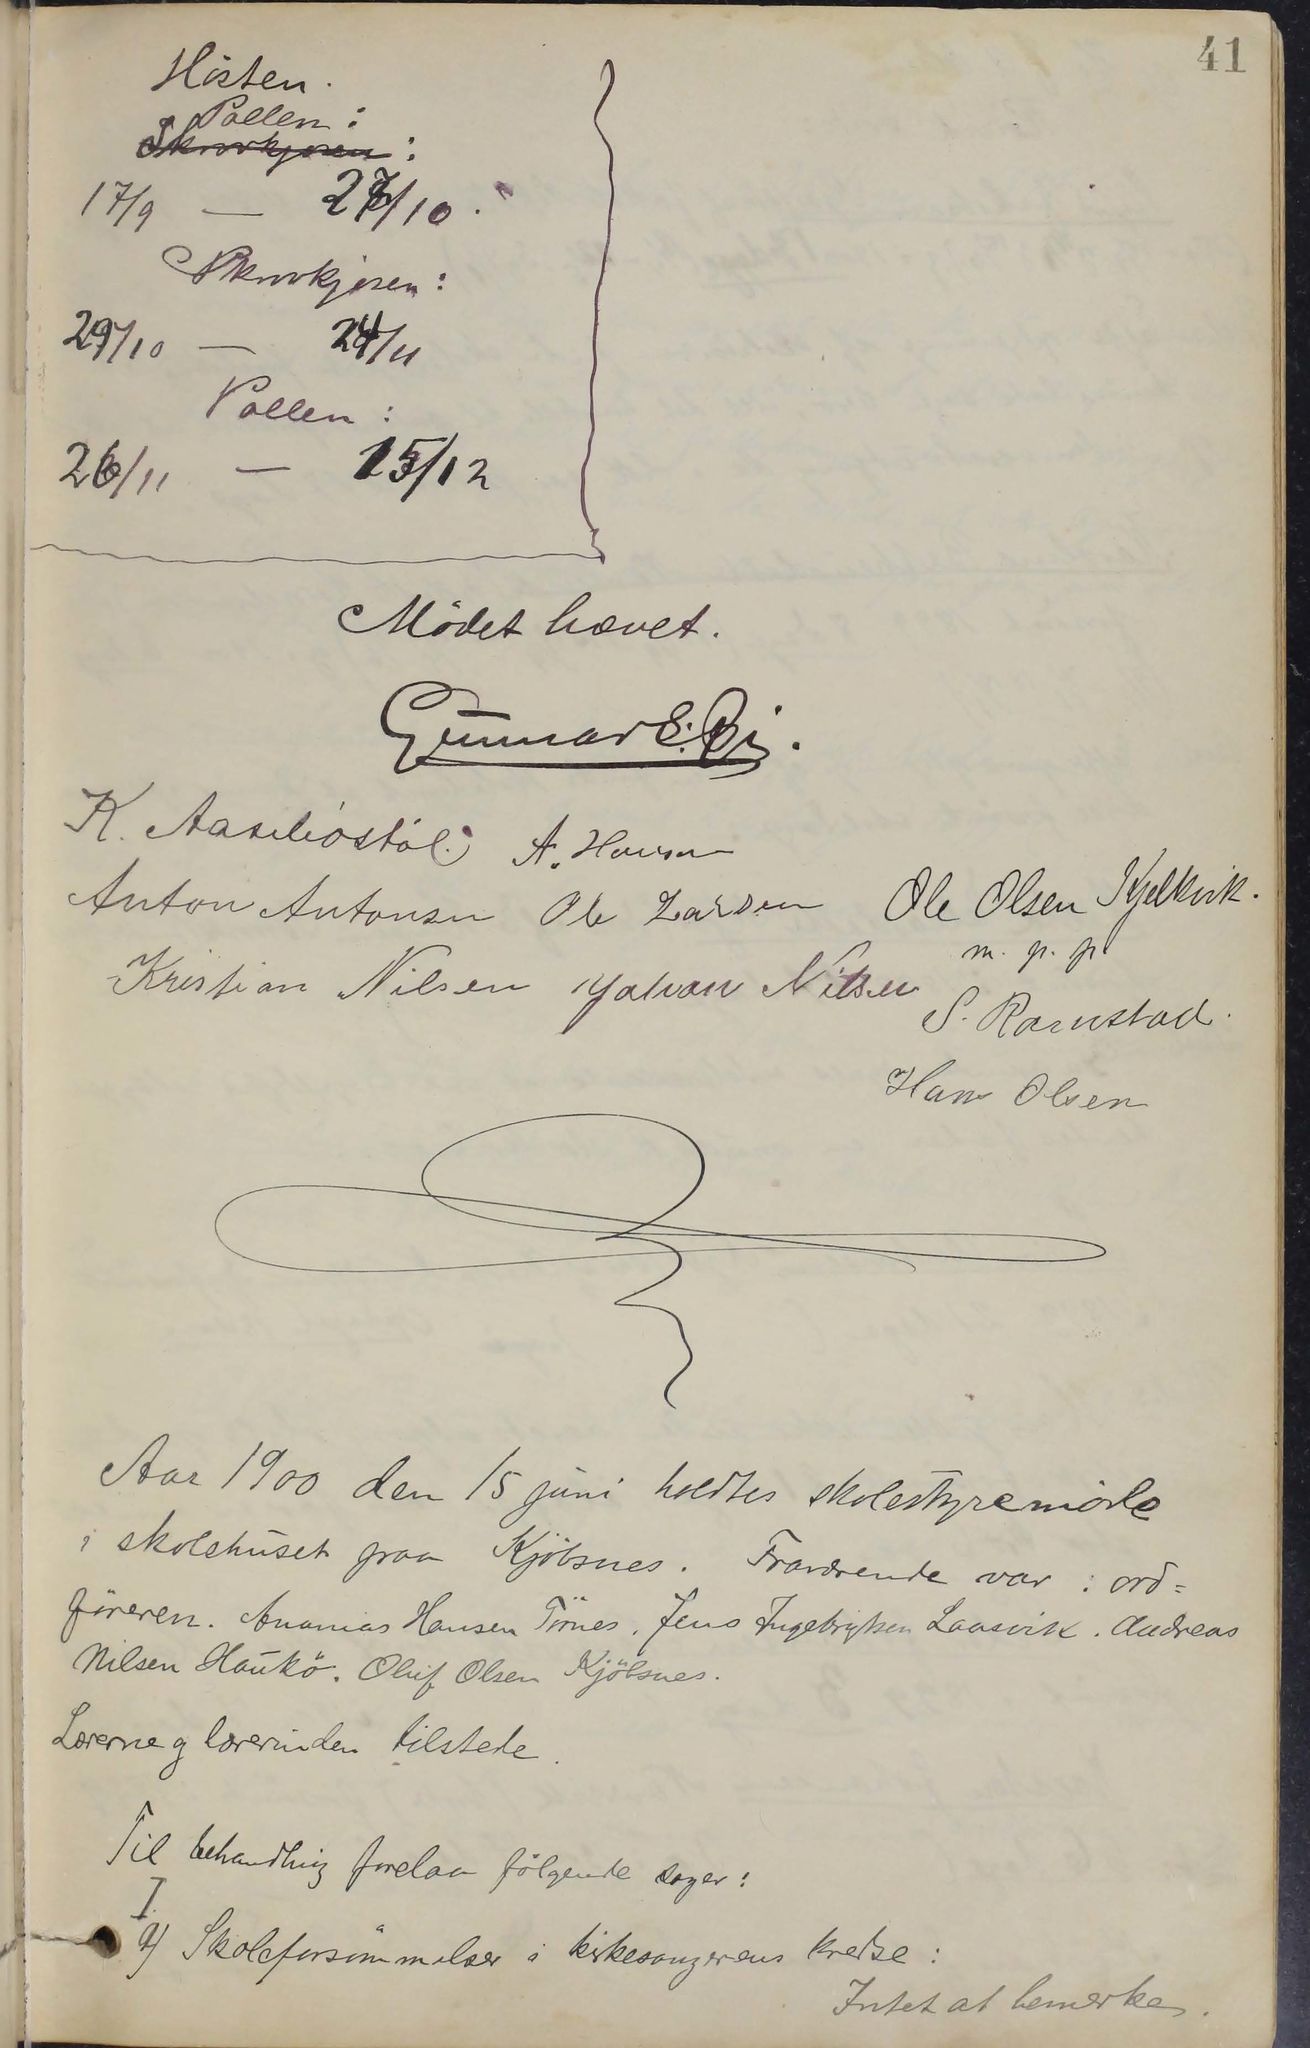 41
Hösten.
Pollen:
Skrovkjosen:
17/9 — 27/10.
Skrovkjosen:
29/10 — 24/11
Pollen:
26/11 — 15/12
Mödet hævet.
Gunnar E. Bi.
K. Aaseliöstöl. A. Hansen
Anton Antonsen Ole Larsen Ole Olsen Kjelkvik.
m. p. p.
Kristian Nilsen Johan Nilsen
S. Ramstad.
Hans Olsen
Aar 1900 den 15 juni holdtes skolestyremöde
i skolehuset paa Kjöbsnes. Fraværende var: ord=
föreren. Ananias Hansen Törnes. Jens Ingebrigtsen Laasvik. Andreas
Nilsen Haukö. Oluf Olsen Kjöbsnes.
Lærerne og lærerinden tilstede.
Til behandling forelaa fölgende sager:
I
a) Skoleforsömmelser i kirkesangerens kredse:
Intet at bemerke.